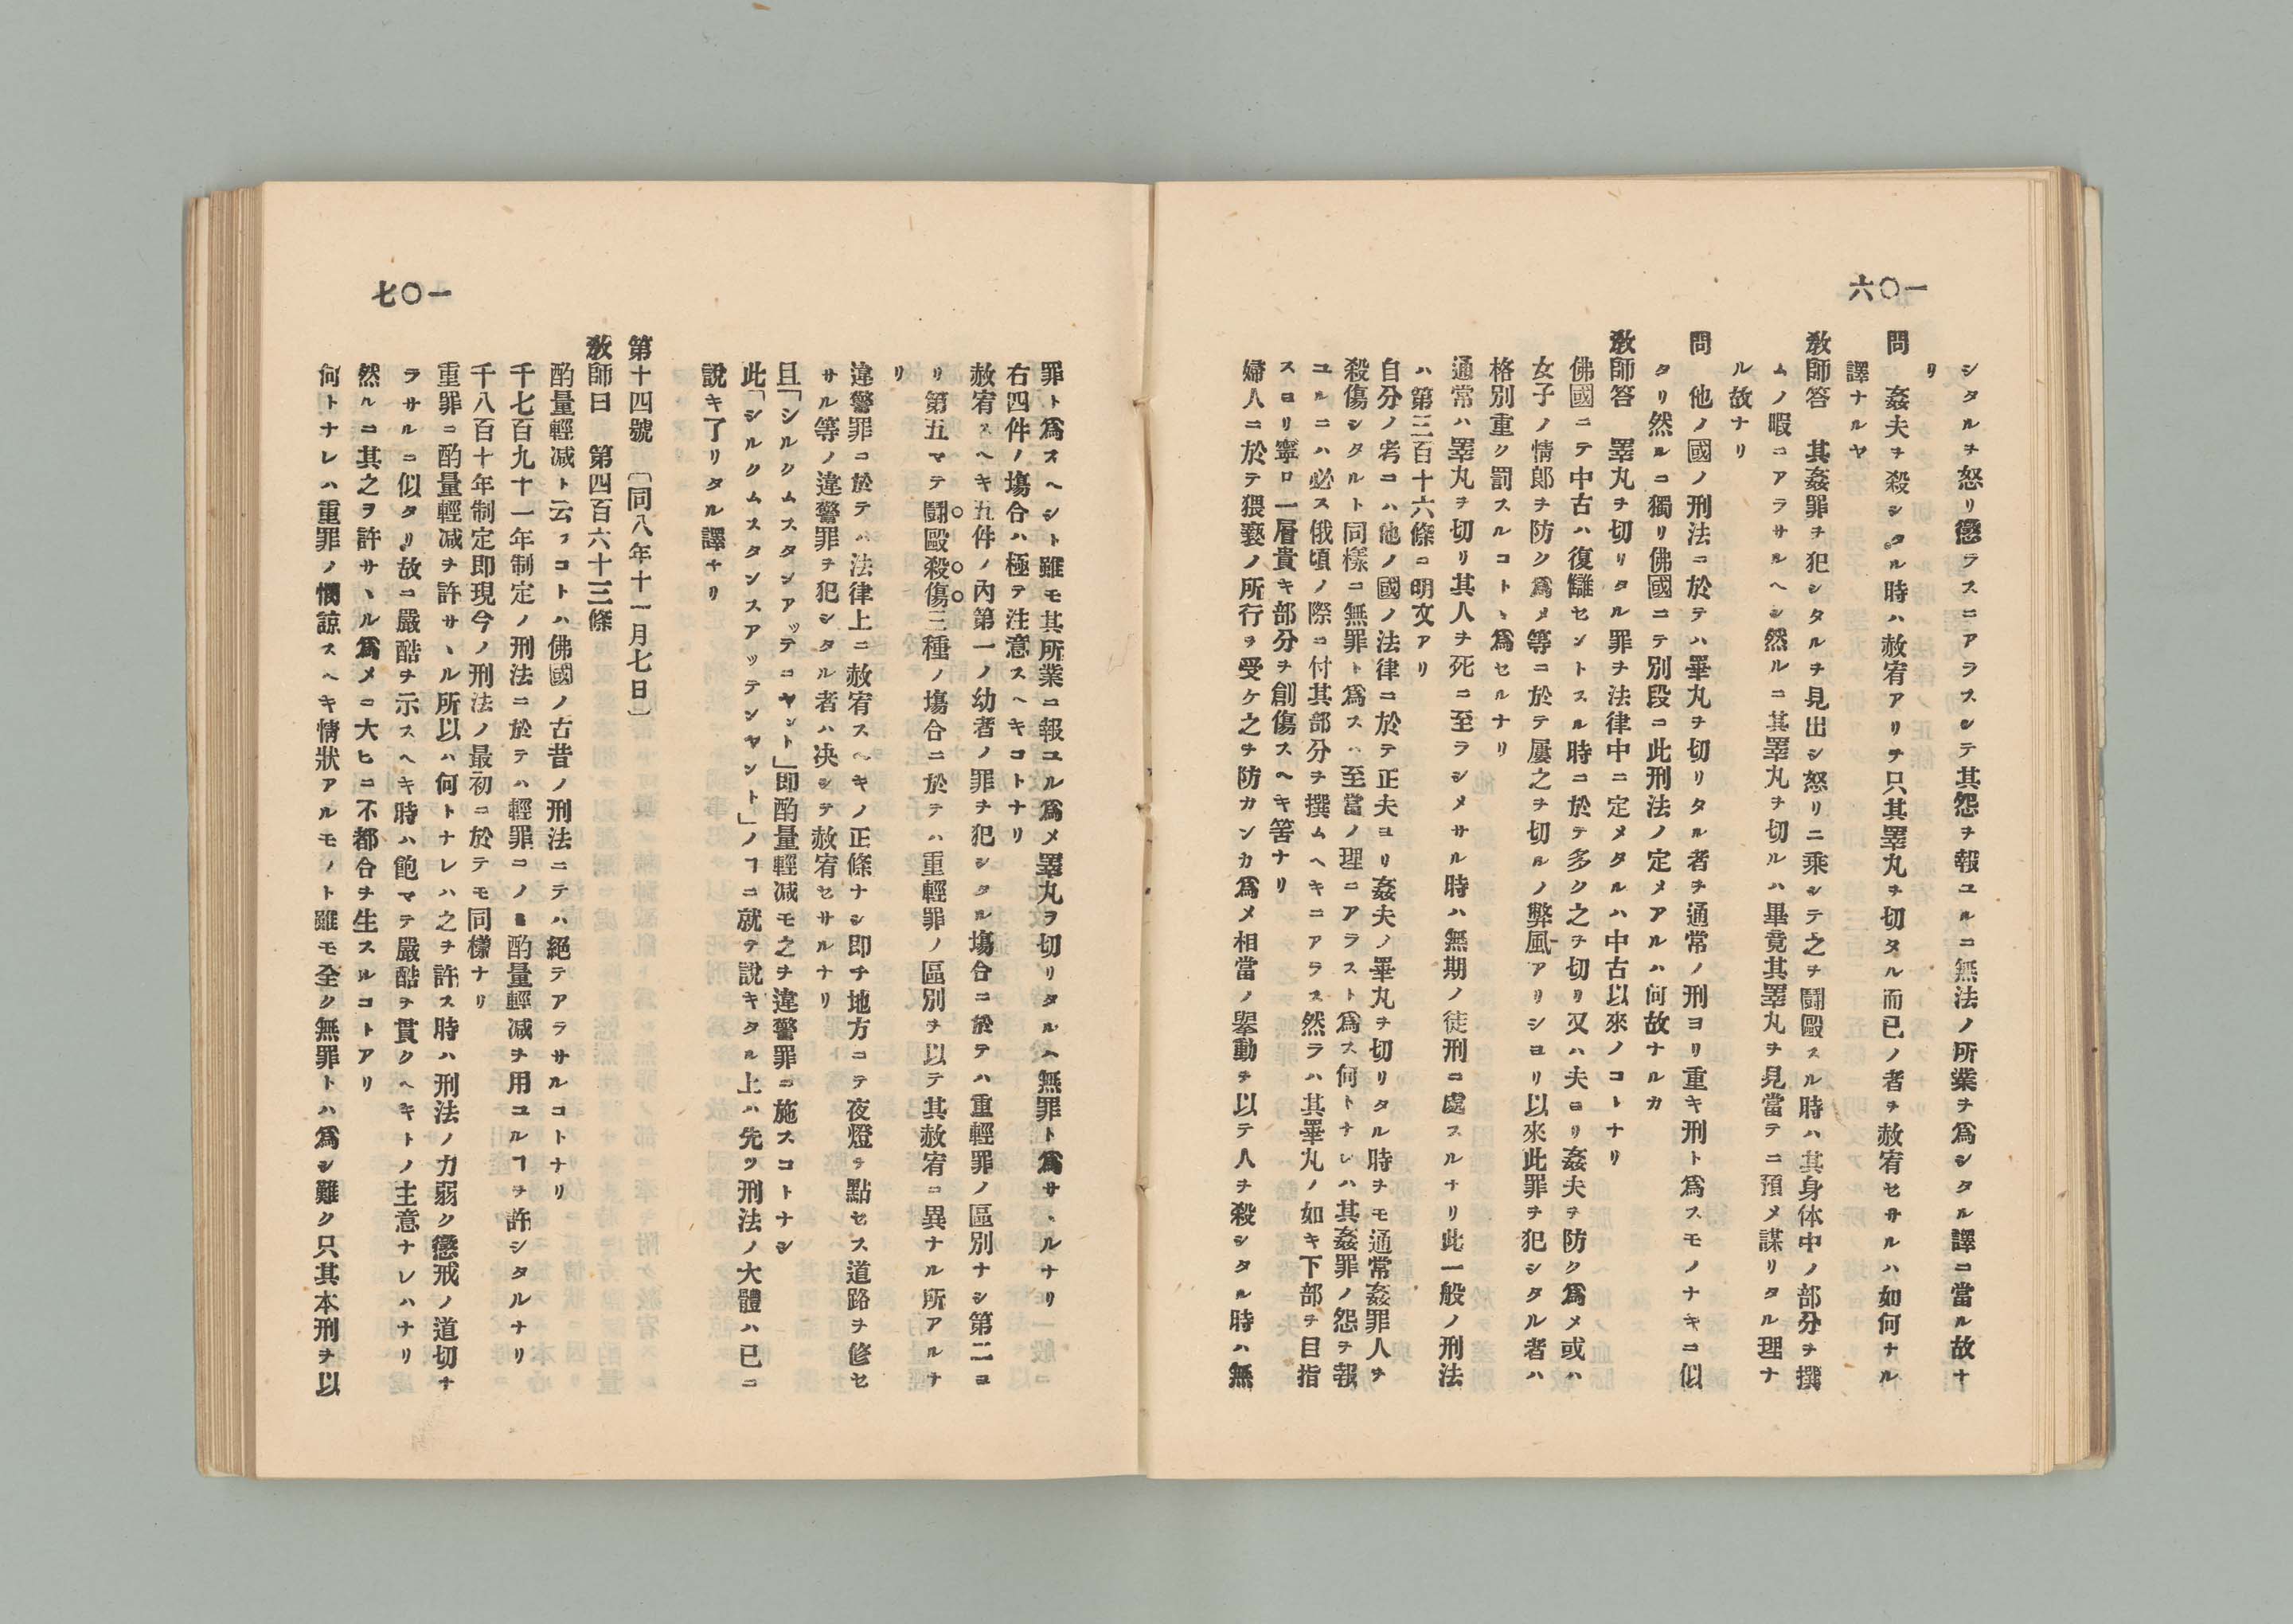 一〇六
シタルヲ怒リ懲ラスニアラスシテ其怨ヲ報ユルニ無法ノ所業ヲ爲シタル譯ニ當ル故ナ
リ
問　姦夫ヲ殺シタル時ハ赦宥アリヲ只其睪丸ヲ切タル而已ノ者ヲ赦宥セサルハ如何ナル
譯ナルヤ
敎師答　其姦罪ヲ犯シタルヲ見出シ怒リニ乘シテ之ヲ鬪毆スル時ハ其身体中ノ部分ヲ撰
ムノ暇ニアラサルヘシ然ルニ其睪丸ヲ切ルハ畢竟其睪丸ヲ見當テニ預メ謀リタル理ナ
ル故ナリ
問　他ノ國ノ刑法ニ於テハ睾丸ヲ切リタル者ヲ通常ノ刑ヨリ重キ刑ト爲スモノナキニ似
タリ然ルニ獨リ佛國ニテ別段ニ此刑法ノ定メアルハ何故ナルカ
敎師答　睪丸ヲ切リタル罪ヲ法律中ニ定メタルハ中古以來ノコトナリ
佛國ニテ中古ハ復讎セントスル時ニ於テ多ク之ヲ切リ又ハ夫ヨリ姦夫ヲ防ク爲メ或ハ
女子ノ情郞ヲ防ク爲メ等ニ於テ屢之ヲ切ルノ弊風アリシヨリ以來此罪ヲ犯シタル者ハ
格別重ク罰スルコトヽ爲セルナリ
通常ハ睪丸ヲ切リ其人ヲ死ニ至ラシメサル時ハ無期ノ徒刑ニ處スルナリ此一般ノ刑法
ハ第三百十六條ニ明文アリ
自分ノ考ニハ他ノ國ノ法律ニ於テ正夫ヨリ姦夫ノ睾丸ヲ切リタル時ヲモ通常姦罪人ヲ
殺傷シタルト同樣ニ無罪ト爲スハ至當ノ理ニアラスト爲ス何トナレハ其姦罪ノ怨ヲ報
ユルニハ必ス俄頃ノ際ニ付其部分ヲ撰ムヘキニアラス然ラハ其睾丸ノ如キ下部ヲ目指
スヨリ寧ロ一層貴キ部分ヲ創傷スヘキ筈ナリ
婦人ニ於テ猥褻ノ所行ヲ受ケ之ヲ防カンカ爲メ相當ノ擧動ヲ以テ人ヲ殺シタル時ハ無
一〇七
罪ト爲スヘシト雖モ其所業ニ報ユル爲メ睪丸ヲ切リタルハ無罪ト爲サヽルナリ
右四件ノ塲合ハ極テ注意スヘキコトナリ
赦宥スヘキ五件ノ內第一ノ幼者ノ罪ヲ犯シタル塲合ニ於テハ重輕罪ノ區別ナシ第二ヨ
リ第五マテ鬪毆殺傷三種ノ塲合ニ於テハ重輕罪ノ區別ヲ以テ其赦宥ニ異ナル所アルナ
リ
違警罪ニ於テハ法律上ニ赦宥スヘキノ正條ナシ即チ地方ニテ夜燈ヲ點セス道路ヲ修セ
サル等ノ違警罪ヲ犯シタル者ハ決シテ赦宥セサルナリ
且「シルクムスタンシアッテニヤント」即酌量輕減モ之ヲ違警罪ニ施スコトナシ
此「シルクムスタンスアッテンヤント」ノヿニ就テ說キタル上ハ先ツ刑法ノ大體ハ已ニ
說キ了リタル譯ナリ
第十四號　〔同八年十一月七日〕
敎師曰　第四百六十三條
酌量輕減ト云フコトハ佛國ノ古昔ノ刑法ニテハ絕テアラサルコトナリ
千七百九十一年制定ノ刑法ニ於テハ輕罪ニノミ酌量輕減ヲ用ユルヿヲ許シタルナリ
千八百十年制定即現今ノ刑法ノ最初ニ於テモ同樣ナリ
重罪ニ酌量輕減ヲ許サヽル所以ハ何トナレハ之ヲ許ス時ハ刑法ノ力弱ク懲戒ノ道切ナ
ラサルニ似タリ故ニ嚴酷ヲ示スヘキ時ハ飽マテ嚴酷ヲ貫クヘキトノ主意ナレハナリ
然ルニ其之ヲ許サヽル爲メニ大ヒニ不都合ヲ生スルコトアリ
何トナレハ重罪ノ憫諒スヘキ情狀アルモノト雖モ全ク無罪トハ爲シ難ク只其本刑ヲ以